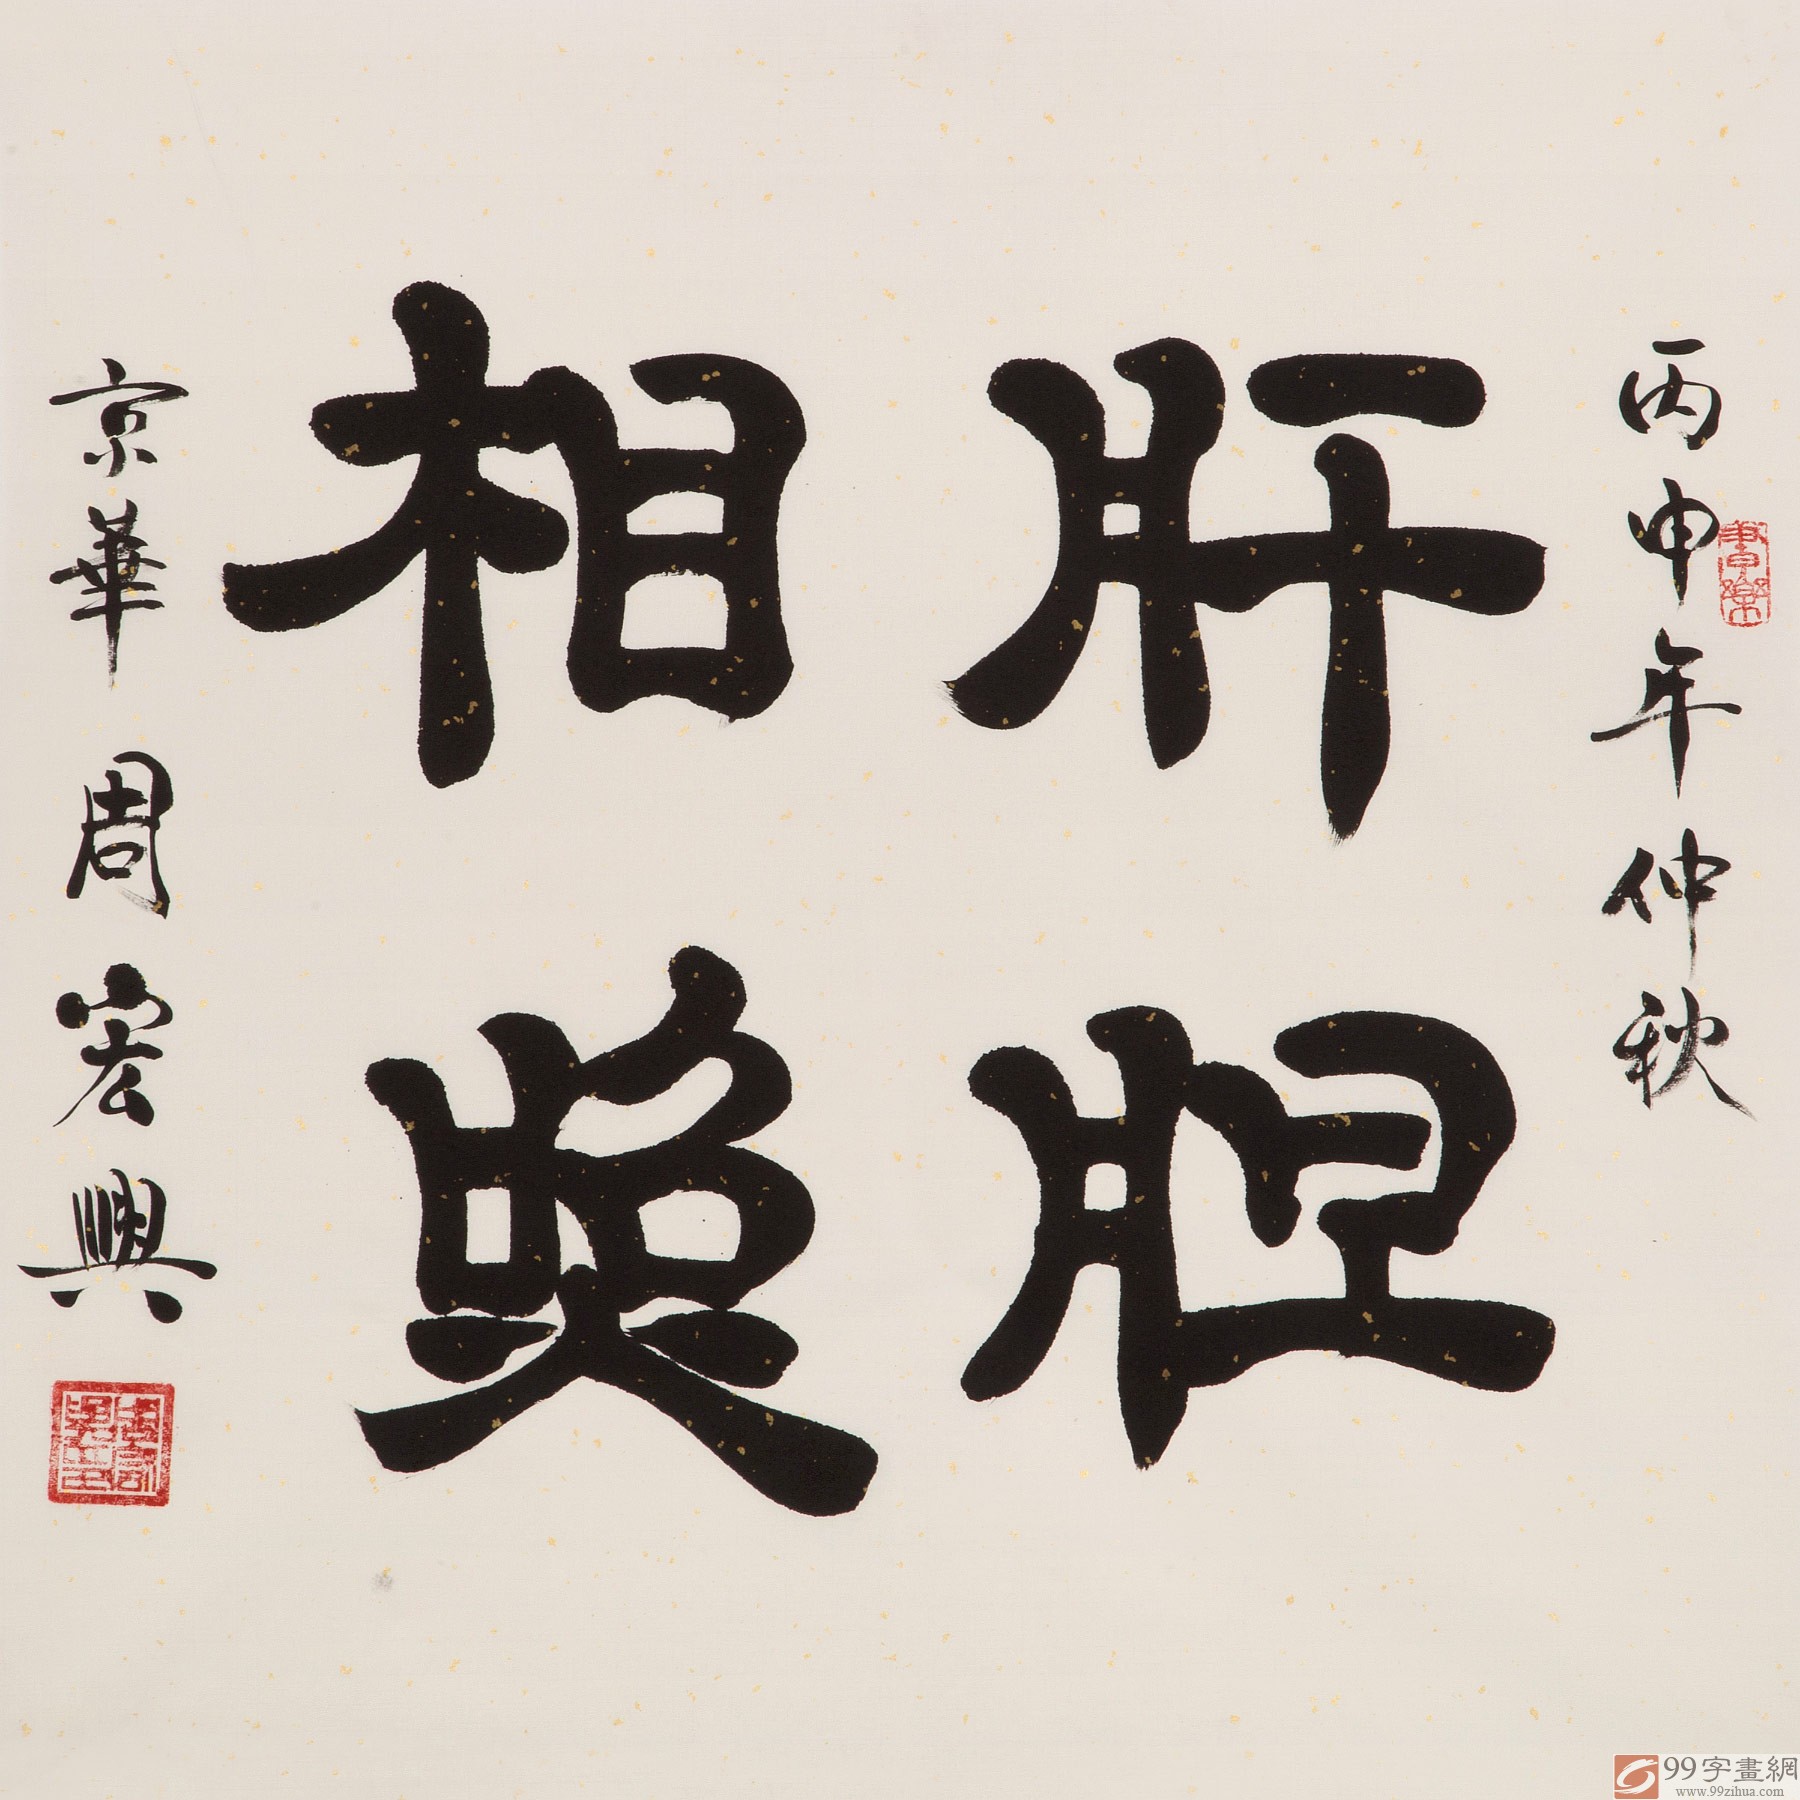 丙申年仲秋
肝胆
相照
京華周宏興
書樂
99字畫網
www.99zihua.com